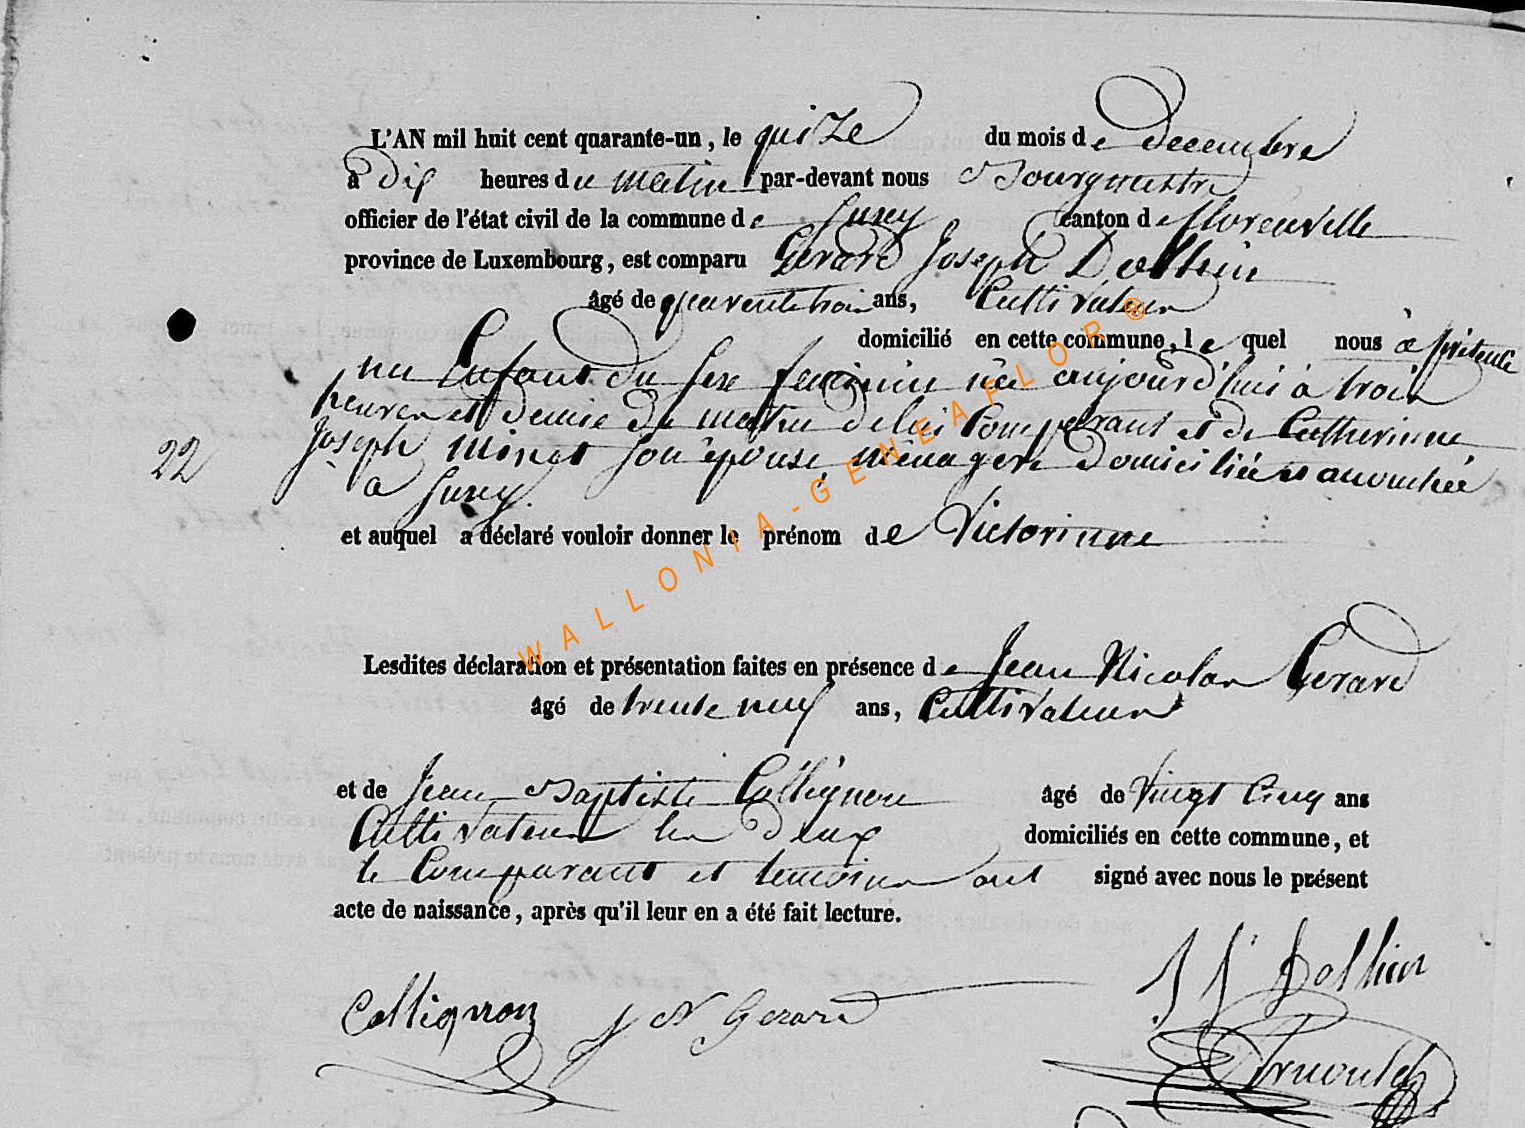 L'AN mil huit cent quarante-un, le quize du mois de decembre
à dix heures du matin par-devant nous Bourgmestre
officier de l'état civil de la commune de Suxy canton de florenville
province de Luxembourg, est comparu Gerard Joseph Dothin
âgé de quarente trois ans, Cultivateur
domicilié en cette commune, le quel nous a présenté
un Enfant du sexe feminin née aujourd'hui à trois
heures et demie du matin de lui Comparant et de Catherinne
22
Joseph Minet son épouse, ménagere domiciliée et accouchée
à Suxy.
et auquel a déclaré vouloir donner le prénom de Victorinne
WALLONIA-GENEAFLOR®
Lesdites déclaration et présentation faites en présence de Jean Nicolas Gerard
âgé de trente neuf ans, Cultivateur
et de Jean Baptiste Collignon âgé de Vingt Cinq ans
Cultivateur les deux domiciliés en cette commune, et
le Comparant et temoins ont signé avec nous le présent
acte de naissance, après qu'il leur en a été fait lecture.
Collignon J N Gerard